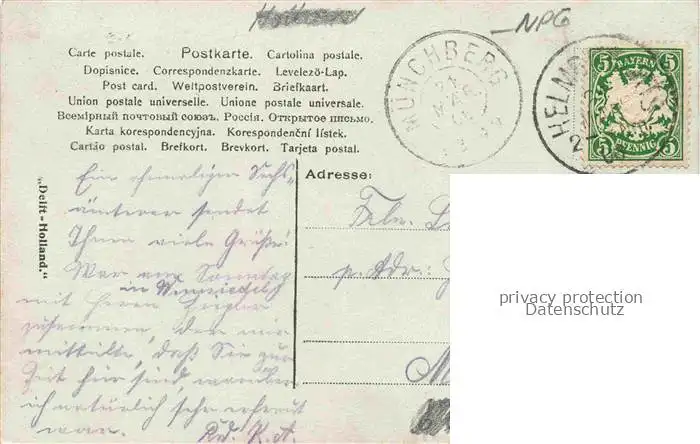 NPG
Carte postale. Postkarte. Cartolina postale.
Dopisnice. Correspondenzkarte. Levelező-Lap.
Post card. Weltpostverein. Briefkaart.
Union postale universelle. Unione postale universale.
Всемірный почтовый союзъ. Россія. Открытое письмо.
Karta korespondencyjna. Korespondenční lístek.
Cartão postal. Brefkort. Brevkort. Tarjeta postal.
MÜNCHBERG
HELMB
BAYERN
5 5
PFENNIG
"Delft-Holland."
Adresse:
Ein ehemaliger Sechs-
ämterer sendet
Ihnen viele Grüße.
War am Sonntag
in Wunsiedel
mit Herrn Ziegler
zusammen, der mir
mitteilte, daß Sie zur
Zeit hier sind, worüber
ich natürlich sehr erfreut
war.
Frln.
p. Adr:
M
privacy protection
Datenschutz